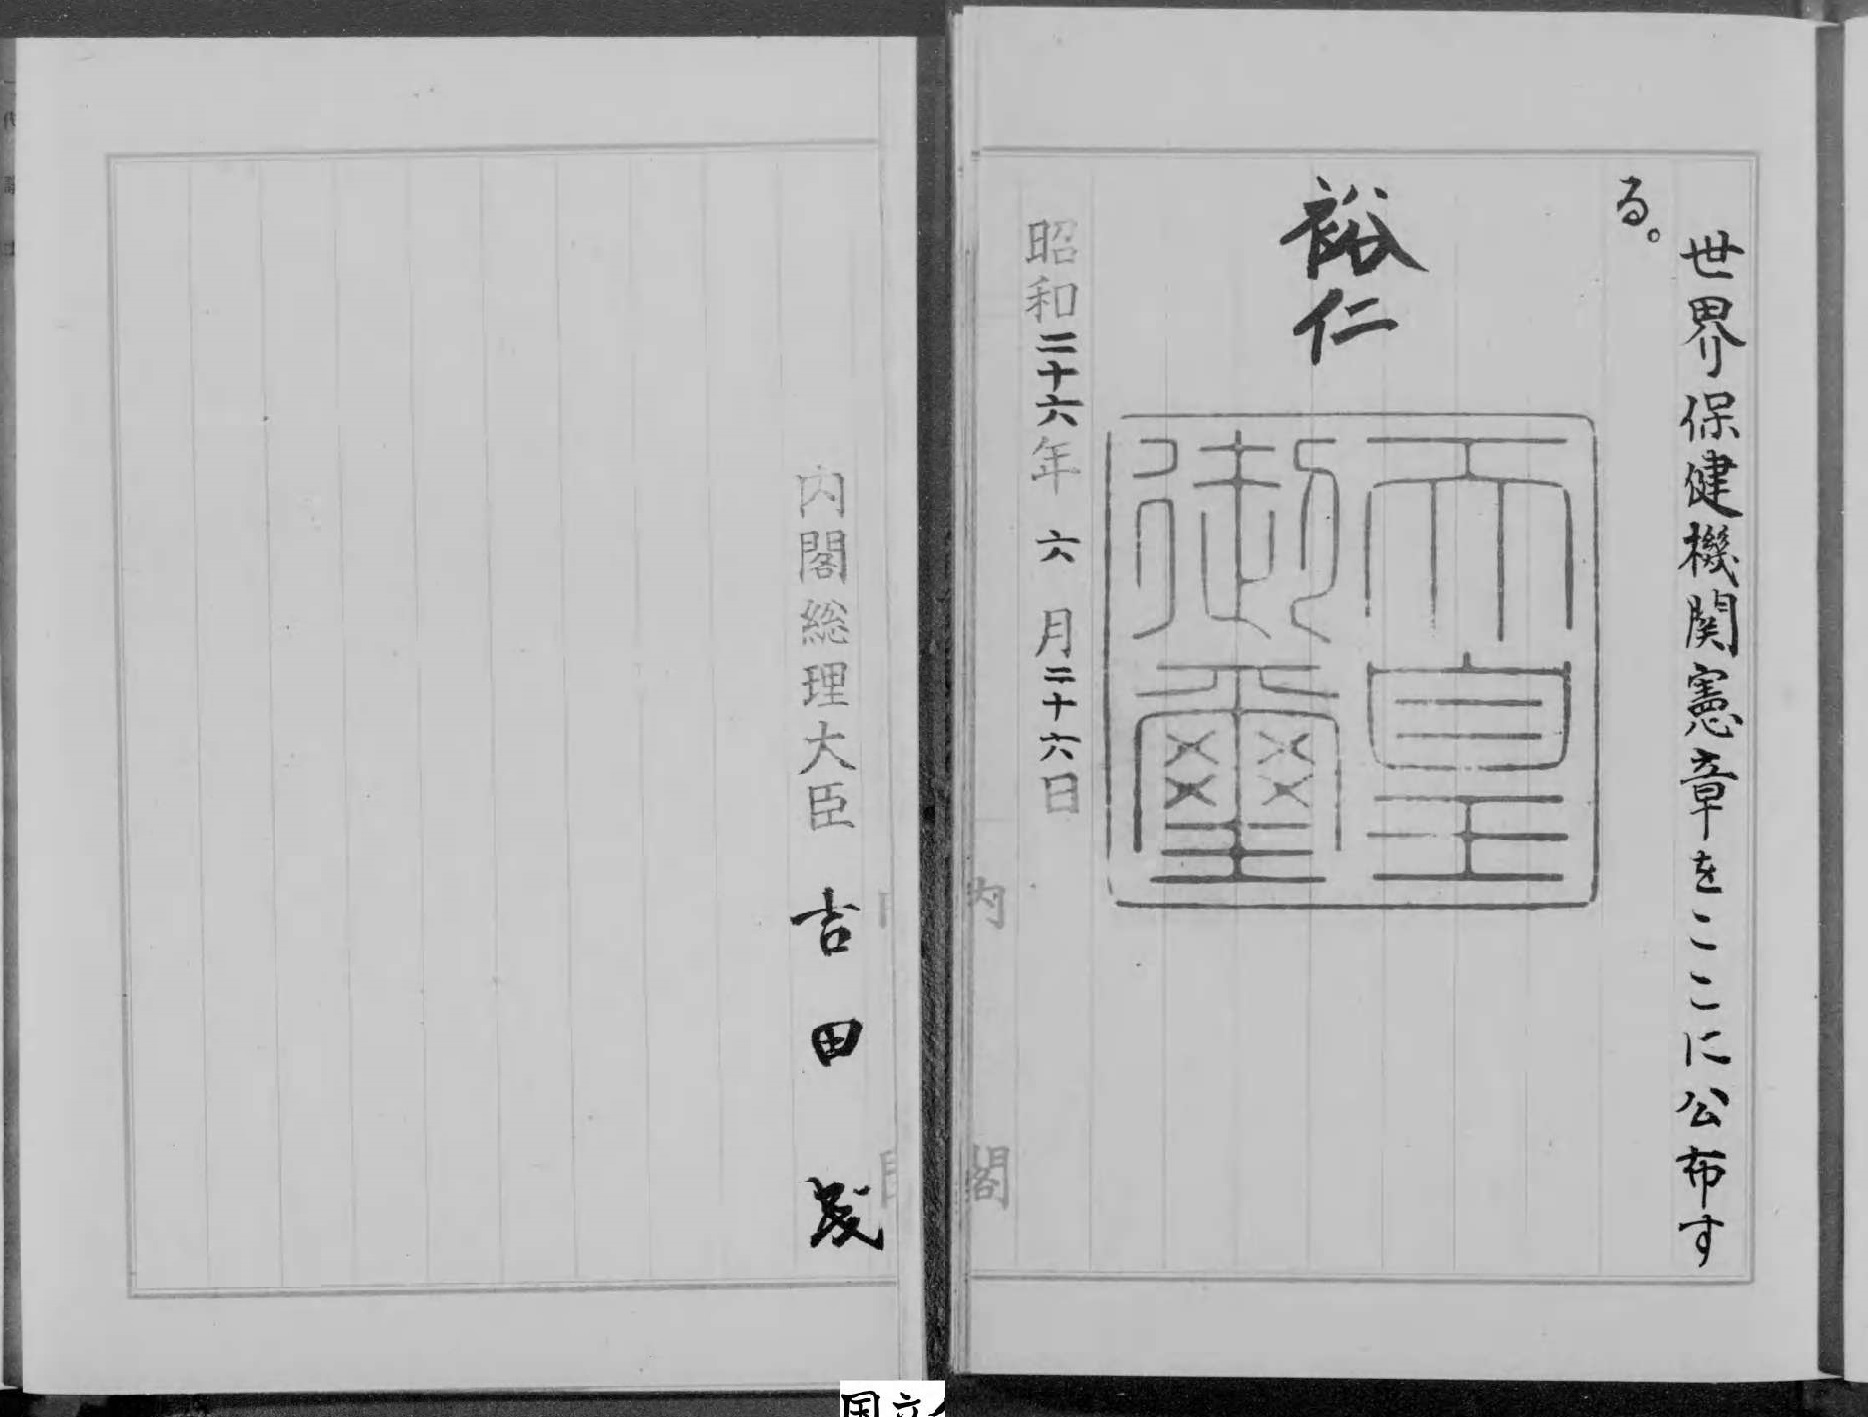 世界保健機関憲章をここに公布す
る。
裕仁
天皇
御璽
昭和二十六年六月二十六日
内閣
内閣総理大臣 吉田茂
国立